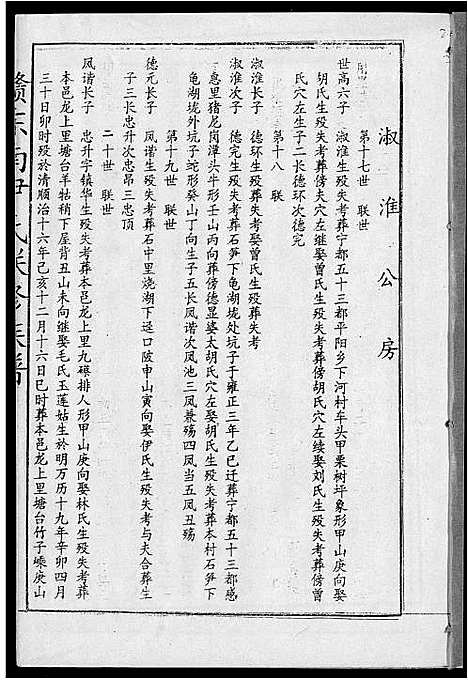 淑淮公房
第十七世 联世
世高六子 淑淮生殁失考葬宁都五十三都平阳乡下河村车头甲栗树坪象形甲山庚向娶
胡氏生殁失考葬傍夫穴左继娶曾氏生殁失考葬傍胡氏穴左续娶刘氏生殁失考葬傍曾
氏穴左生子二长德环次德完
第十八 联世
淑淮长子 德环生殁葬失考娶曾氏生殁失考
淑淮次子 德完生殁失考葬石笋下龟湖垅处坑子于雍正三年乙巳迁葬宁都五十三都感
息里猪龙岗潭头牛形壬山丙向葬傍德显婆太胡氏穴左娶胡氏生殁失考葬本村石笋下
龟湖垅外坑子蛇形癸山丁向生子五长凤谐次凤池三凤兼殇四凤当五凤丑殇
第十九世 联世
德元长子 凤谐生殁失考葬石中里烧湖下迳口陂申山寅向娶伊氏生殁失考与夫合葬生
子三长忠升次忠昂三忠顶
二十世 联世
凤谐长子 忠升字镇华生殁失考葬本邑龙上里九磜排人形甲山庚向娶林氏生殁失考葬
本邑龙上里塘台羊牯稍下屋背丑山未向继娶毛氏玉莲姑生於明万历十九年辛卯四月
三十日卯时殁於清顺治十六年己亥十二月十六日巳时葬本邑龙上里塘台竹子嵊庚山